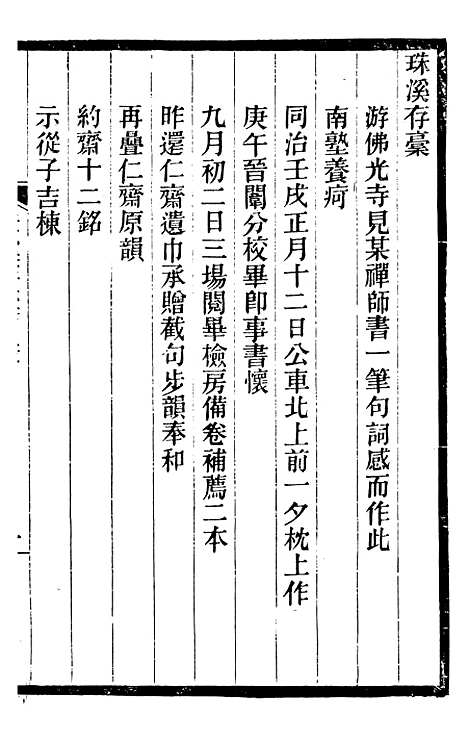 珠溪存稾
游佛光寺見某禪師書一筆句詞感而作此
南塾養疴
同治壬戌正月十二日公車北上前一夕枕上作
庚午晉闈分校畢卽事書懷
九月初二日三場閱畢檢房備卷補薦二本
昨還仁齋遺巾承贈截句步韻奉和
再疊仁齋原韻
約齋十二銘
示從子吉棟